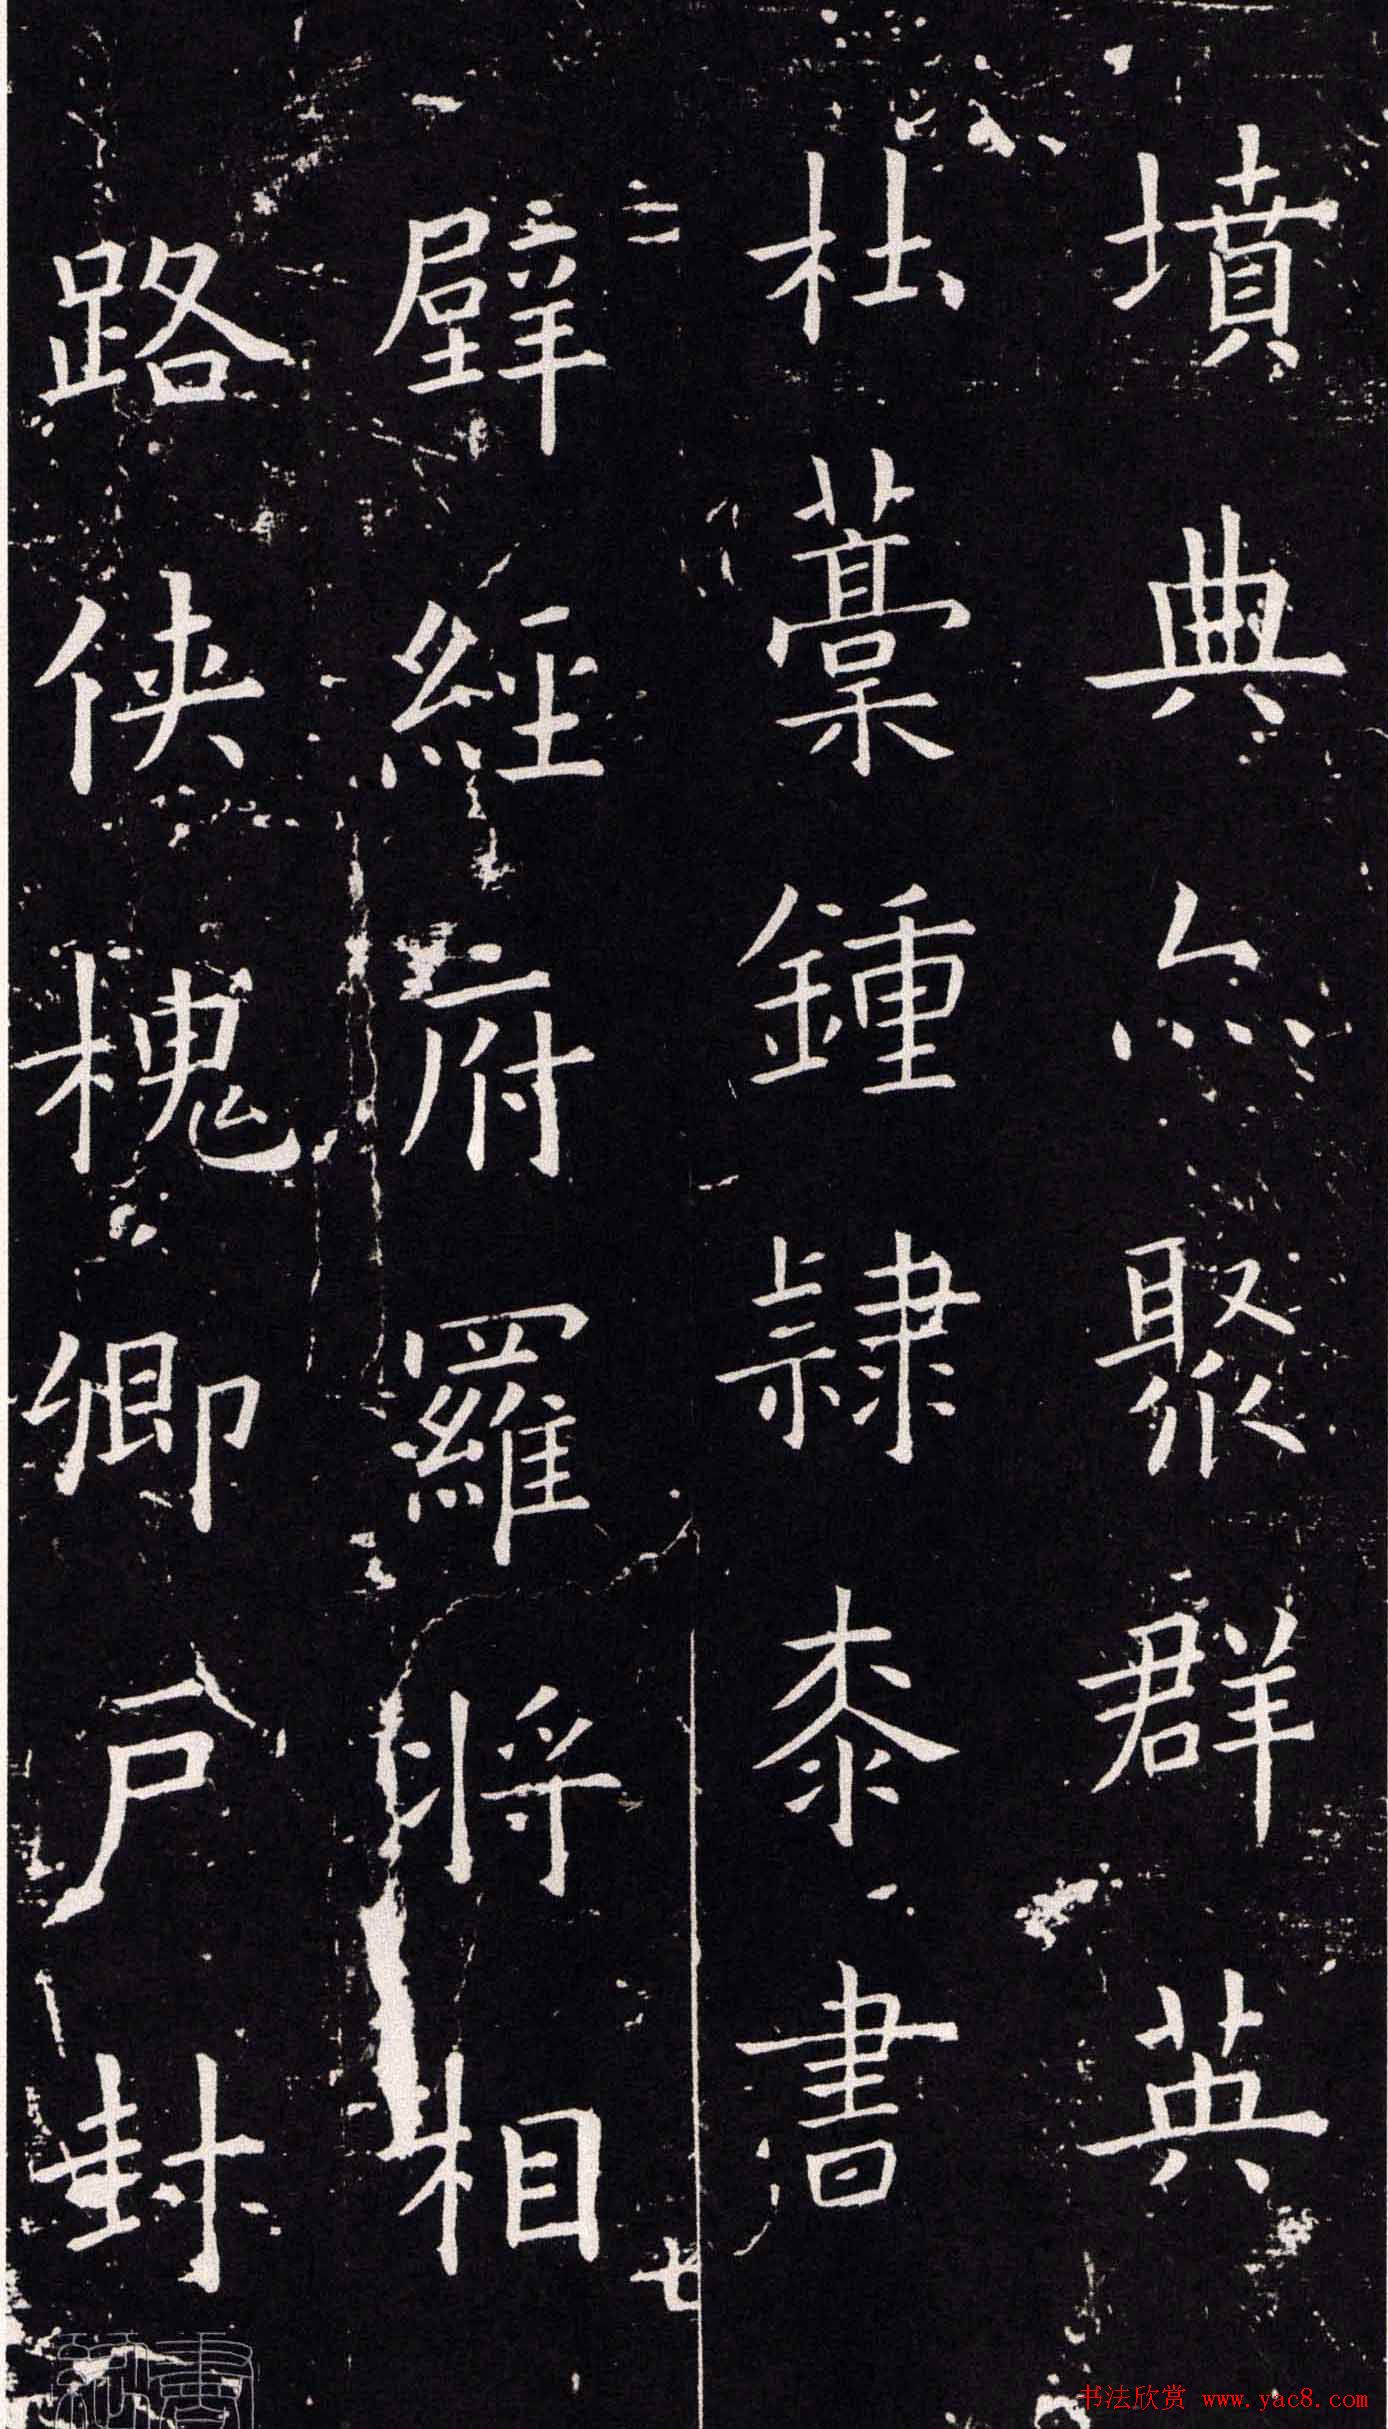 墳典亦聚群英
杜藁鍾隸桼書
壁經府羅将相
路侠槐卿戶封
书法欣赏 www.yac8.com